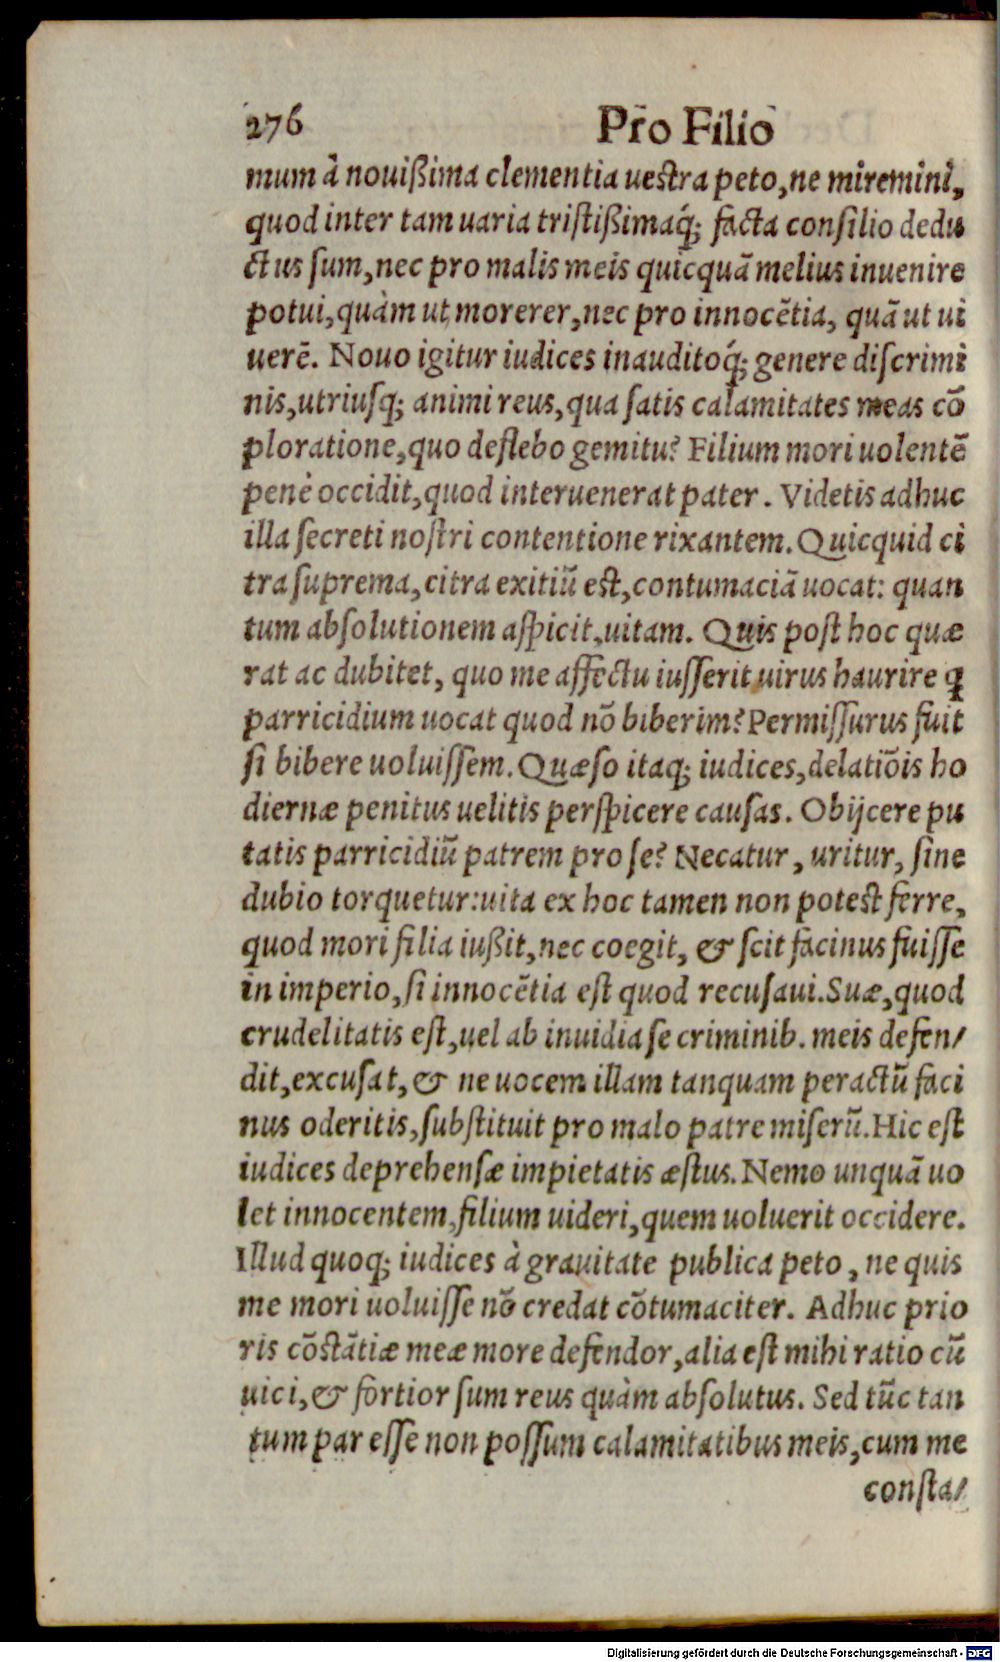 276 Pro Filio
mum à nouißima clementia uestra peto, ne miremini,
quod inter tam uaria tristißimaq́; facta consilio dedu
ctus sum, nec pro malis meis quicquā melius inuenire
potui, quàm ut morerer, nec pro innocētia, quā ut ui
uerē. Nouo igitur iudices inauditoq́; genere discrimi
nis, utriusq; animi reus, qua satis calamitates meas cō
ploratione, quo deflebo gemitu? Filium mori uolentē
penè occidit, quod interuenerat pater. Videtis adhuc
illa secreti nostri contentione rixantem. Quicquid ci
tra suprema, citra exitiū est, contumaciā uocat: quan
tum absolutionem aspicit, uitam. Quis post hoc quæ
rat ac dubitet, quo me affectu iusserit uirus haurire ꝗ
parricidium uocat quod nō biberim? Permissurus fuit
si bibere uoluissem. Quæso itaq; iudices, delatiōis ho
diernæ penitus uelitis perspicere causas. Obijcere pu
tatis parricidiū patrem pro se? Necatur, uritur, sine
dubio torquetur: uita ex hoc tamen non potest ferre,
quod mori filia iußit, nec coegit, & scit facinus fuisse
in imperio, si innocētia est quod recusaui. Suæ, quod
crudelitatis est, uel ab inuidia se criminib. meis defen/
dit, excusat, & ne uocem illam tanquam peractū faci
nus oderitis, substituit pro malo patre miserū. Hic est
iudices deprehensæ impietatis æstus. Nemo unquā uo
let innocentem, filium uideri, quem uoluerit occidere.
Illud quoq; iudices à grauitate publica peto, ne quis
me mori uoluisse nō credat cōtumaciter. Adhuc prio
ris cōstātiæ meæ more defendor, alia est mihi ratio cū
uici, & fortior sum reus quàm absolutus. Sed tūc tan
tum par esse non possum calamitatibus meis, cum me
consta/
Digitalisierung gefördert durch die Deutsche Forschungsgemeinschaft - DFG